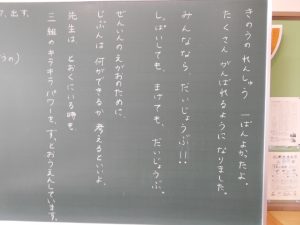 きのうのれんしゅう 一ばんよかったよ。
たくさん がんばれるように なりました。
みんななら、だいじょうぶ!!
しっぱいしても、まけても、だいじょうぶ。
ぜんいんのえがおのために、
じぶんは 何ができるか 考えるといいよ。
先生は とおくにいる時も、
三組のキラキラパワーを、ずっとおうえんしています。